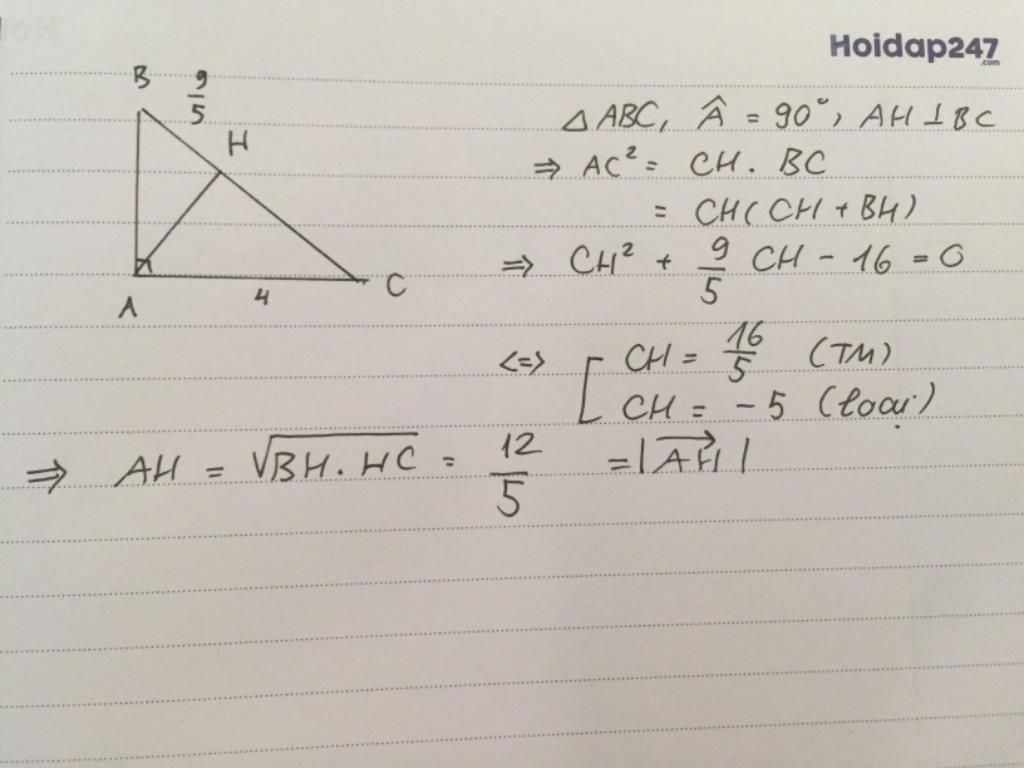 Hoidap247
.com
B 9/5
H
A 4 C
△ABC, Â = 90°, AH ⊥ BC
⇒ AC² = CH . BC
= CH(CH + BH)
⇒ CH² + 9/5 CH - 16 = 0
<=> [ CH = 16/5 (TM)
CH = -5 (loại)
⇒ AH = √BH.HC = 12/5 = |AH⃗|